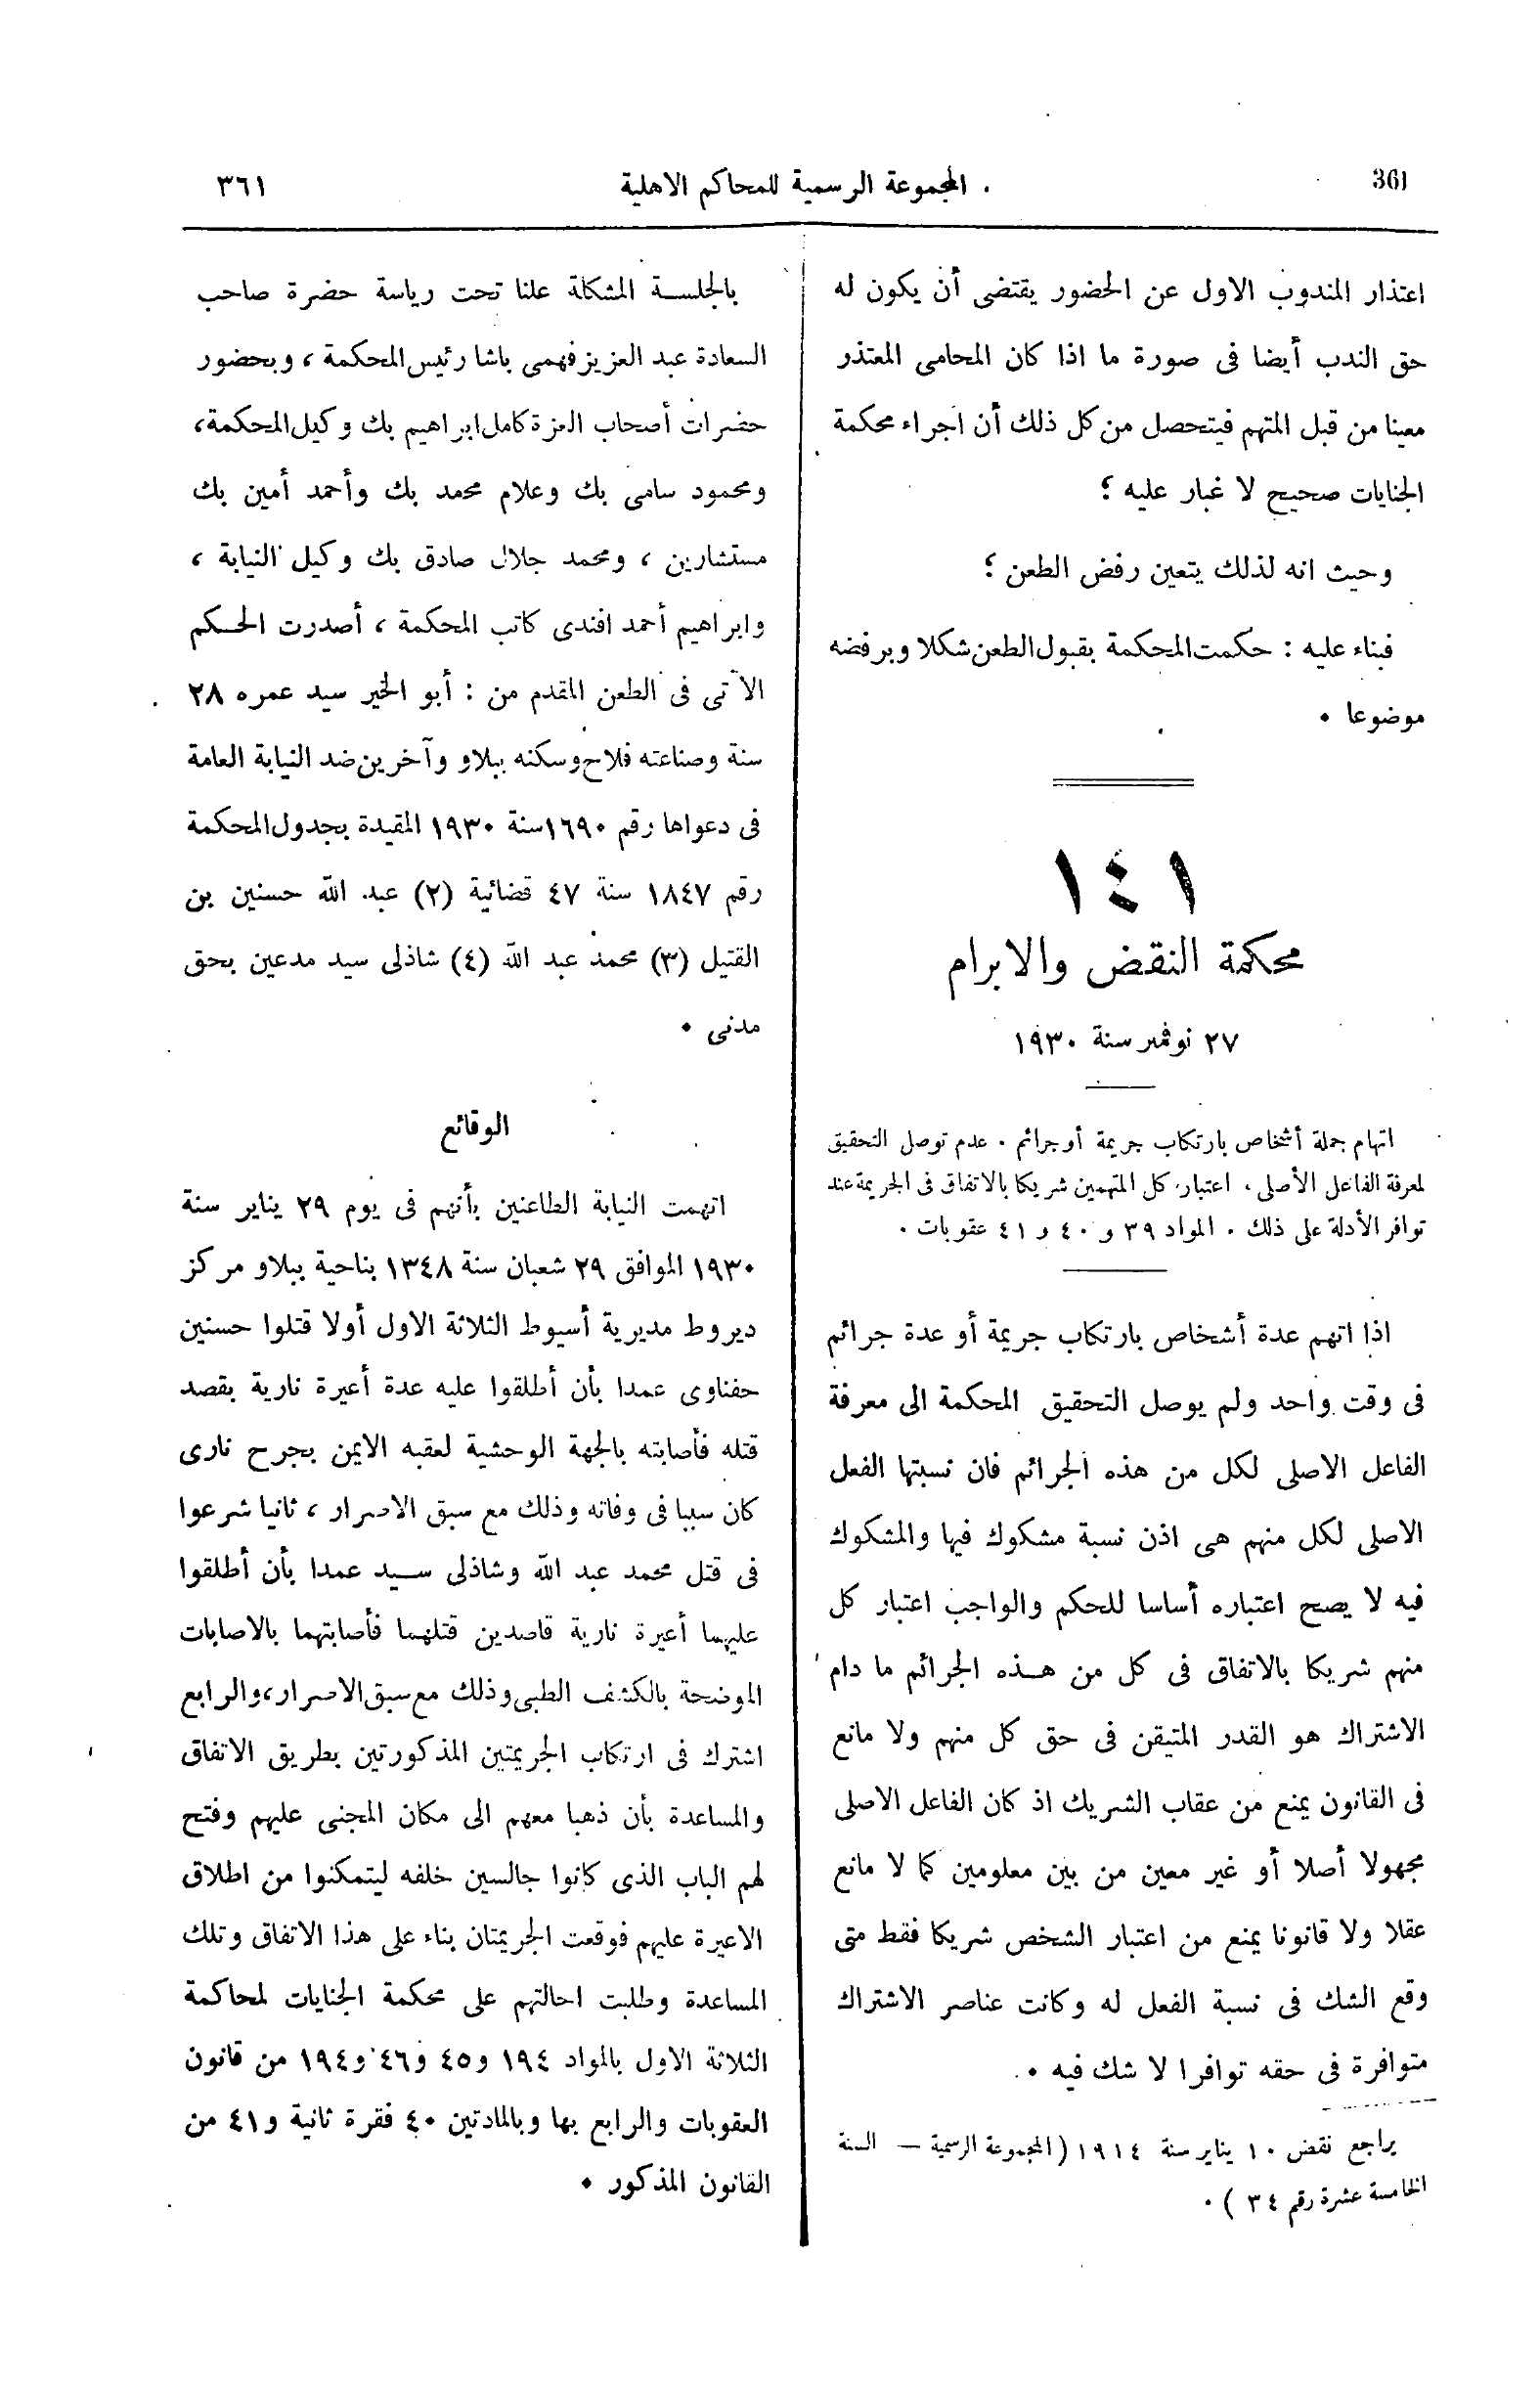 361
المجموعة الرسمية للمحاكم الاهلية
٣٦١
اعتذار المندوب الاول عن الحضور يقتضى أن يكون له
حق الندب أيضا فى صورة ما اذا كان المحامى المعتذر
معينا من قبل المتهم فيتحصل من كل ذلك أن اجراء محكمة
الجنايات صحيح لا غبار عليه ؛
وحيث انه لذلك يتعين رفض الطعن ؛
فبناء عليه : حكمت المحكمة بقبول الطعن شكلا وبرفضه
موضوعا .
١٤١
محكمة النقض والابرام
٢٧ نوفمبر سنة ١٩٣٠
اتهام جملة أشخاص بارتكاب جريمة أو جرائم . عدم توصل التحقيق
لمعرفة الفاعل الأصلى . اعتبار كل المتهمين شريكا بالاتفاق فى الجريمة عند
توافر الأدلة على ذلك . المواد ٣٩ و ٤٠ و ٤١ عقوبات .
اذا اتهم عدة أشخاص بارتكاب جريمة أو عدة جرائم
فى وقت واحد ولم يوصل التحقيق المحكمة الى معرفة
الفاعل الاصلى لكل من هذه الجرائم فان نسبتها الفعل
الاصلى لكل منهم هى اذن نسبة مشكوك فيها والمشكوك
فيه لا يصح اعتباره أساسا للحكم والواجب اعتبار كل
منهم شريكا بالاتفاق فى كل من هذه الجرائم ما دام
الاشتراك هو القدر المتيقن فى حق كل منهم ولا مانع
فى القانون يمنع من عقاب الشريك اذ كان الفاعل الاصلى
مجهولا أصلا أو غير معين من بين معلومين كما لا مانع
عقلا ولا قانونا يمنع من اعتبار الشخص شريكا فقط متى
وقع الشك فى نسبة الفعل له وكانت عناصر الاشتراك
متوافرة فى حقه توافرا لا شك فيه .
يراجع نقض ١٠ يناير سنة ١٩١٤ (المجموعة الرسمية — السنة
الخامسة عشرة رقم ٣٤ ) .
بالجلسة المشكلة علنا تحت رياسة حضرة صاحب
السعادة عبد العزيز فهمى باشا رئيس المحكمة ، وبحضور
حضرات أصحاب العزة كامل ابراهيم بك وكيل المحكمة،
ومحمود سامى بك وعلام محمد بك وأحمد أمين بك
مستشارين ، ومحمد جلال صادق بك وكيل النيابة ،
وابراهيم أحمد افندى كاتب المحكمة ، أصدرت الحكم
الآتى فى الطعن المقدم من : أبو الخير سيد عمره ٢٨
سنة وصناعته فلاح وسكنه ببلاو وآخرين ضد النيابة العامة
فى دعواها رقم ١٦٩٠ سنة ١٩٣٠ المقيدة بجدول المحكمة
رقم ١٨٤٧ سنة ٤٧ قضائية (٢) عبد الله حسنين بن
القتيل (٣) محمد عبد الله (٤) شاذلى سيد مدعين بحق
مدنى .
الوقائع
اتهمت النيابة الطاعنين بأنهم فى يوم ٢٩ يناير سنة
١٩٣٠ الموافق ٢٩ شعبان سنة ١٣٤٨ بناحية ببلاو مركز
ديروط مديرية أسيوط الثلاثة الاول أولا قتلوا حسنين
حفناوى عمدا بأن أطلقوا عليه عدة أعيرة نارية بقصد
قتله فأصابته بالجهة الوحشية لعقبه الايمن بجرح نارى
كان سببا فى وفاته وذلك مع سبق الاصرار ، ثانيا شرعوا
فى قتل محمد عبد الله وشاذلى سيد عمدا بأن أطلقوا
عليهما أعيرة نارية قاصدين قتلهما فأصابتهما بالاصابات
الموضحة بالكشف الطبى وذلك مع سبق الاصرار، والرابع
اشترك فى ارتكاب الجريمتين المذكورتين بطريق الاتفاق
والمساعدة بأن ذهبا معهم الى مكان المجنى عليهم وفتح
لهم الباب الذى كانوا جالسين خلفه ليتمكنوا من اطلاق
الاعيرة عليهم فوقعت الجريمتان بناء على هذا الاتفاق وتلك
المساعدة وطلبت احالتهم على محكمة الجنايات لمحاكمة
الثلاثة الاول بالمواد ١٩٤ و٤٥ و٤٦ و١٩٤ من قانون
العقوبات والرابع بها وبالمادتين ٤٠ فقرة ثانية و٤١ من
القانون المذكور .